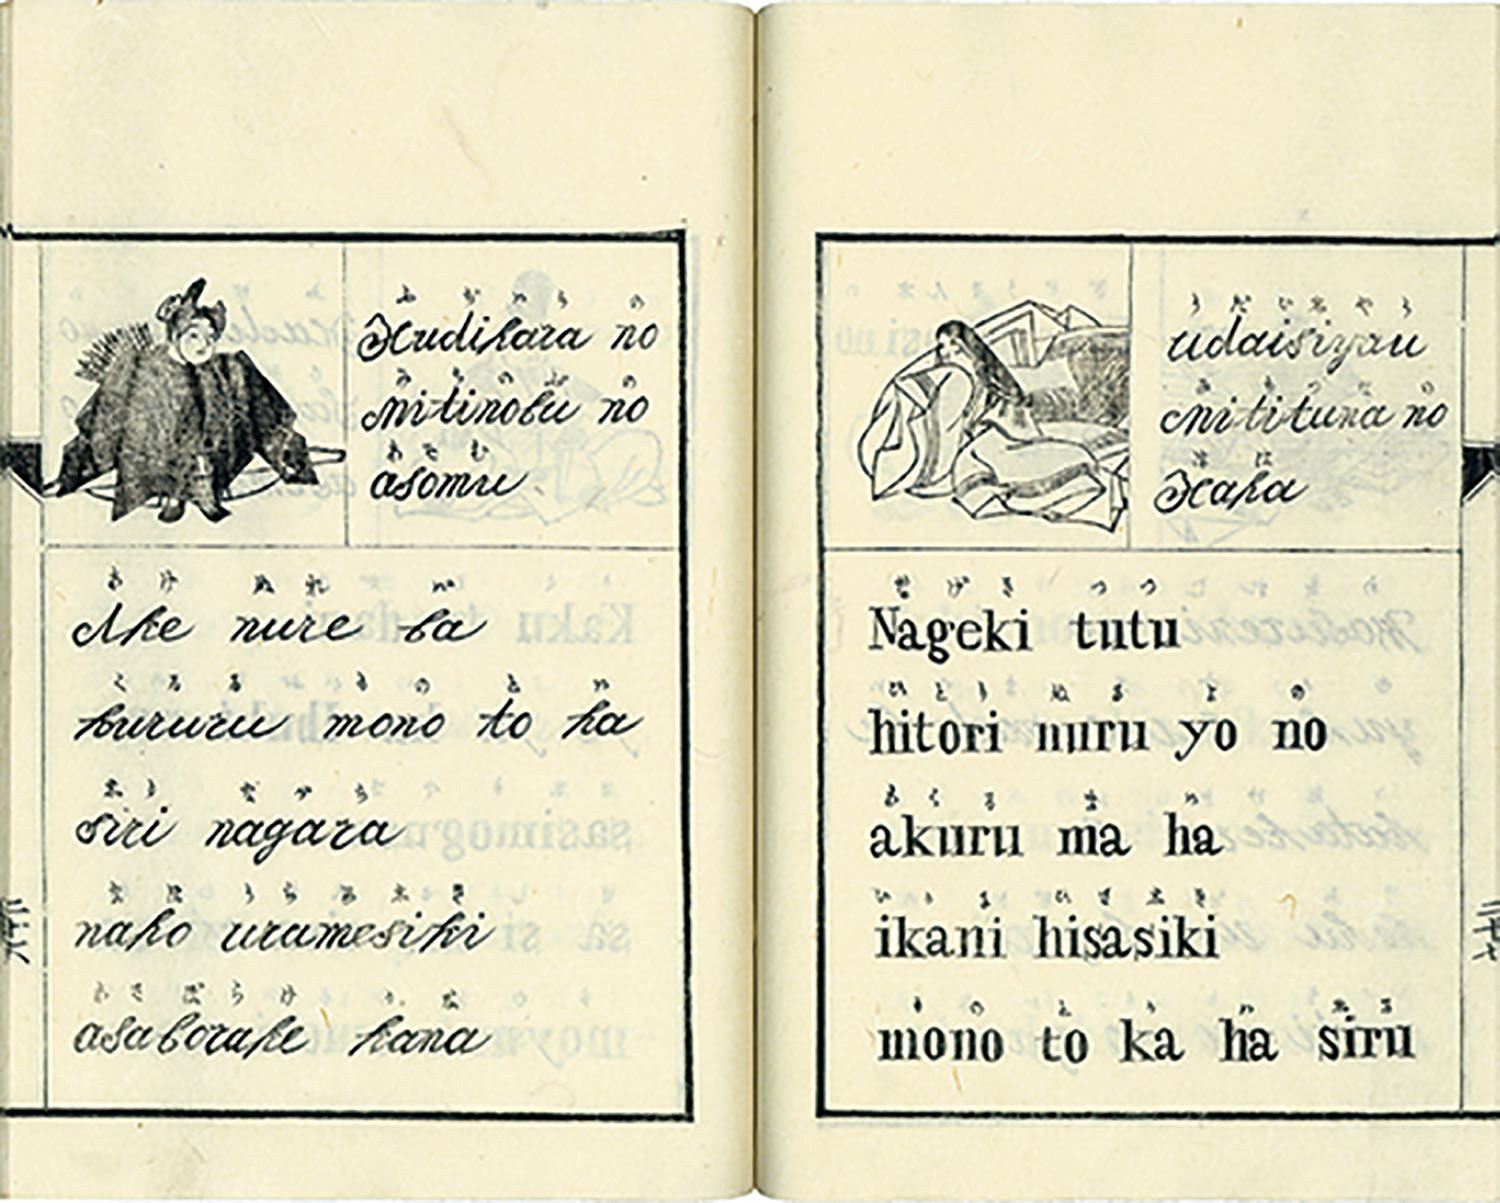 ふぢはら の
Hudihara no
みちのぶ の
Mitinobu no
あそむ
asomu
あけ ぬれ ば
Ake nure ba
くるる もの と は
kururu mono to ha
しり ながら
siri nagara
なほ うらめしき
naho uramesiki
あさぼらけ かな
asaborake kana
うだいしやう
udaisiyau
みちつな の
Mitituna no
はは
Haha
なげき つつ
Nageki tutu
ひとり ぬる よ の
hitori nuru yo no
あくる ま は
akuru ma ha
いかに ひさしき
ikani hisasiki
もの と か は しる
mono to ka ha siru